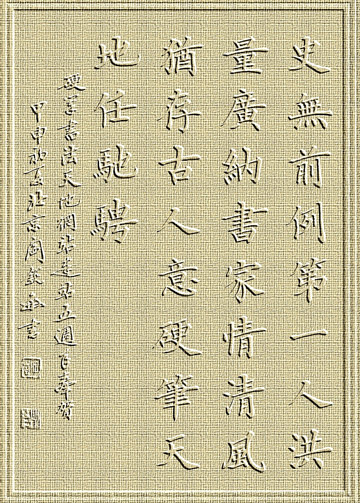 史無前例第一人洪
量廣納書家情清風
猶存古人意硬筆天
地任馳騁
硬筆書法天地網站建站五週百奉賀
甲申初夏張京閣欽書